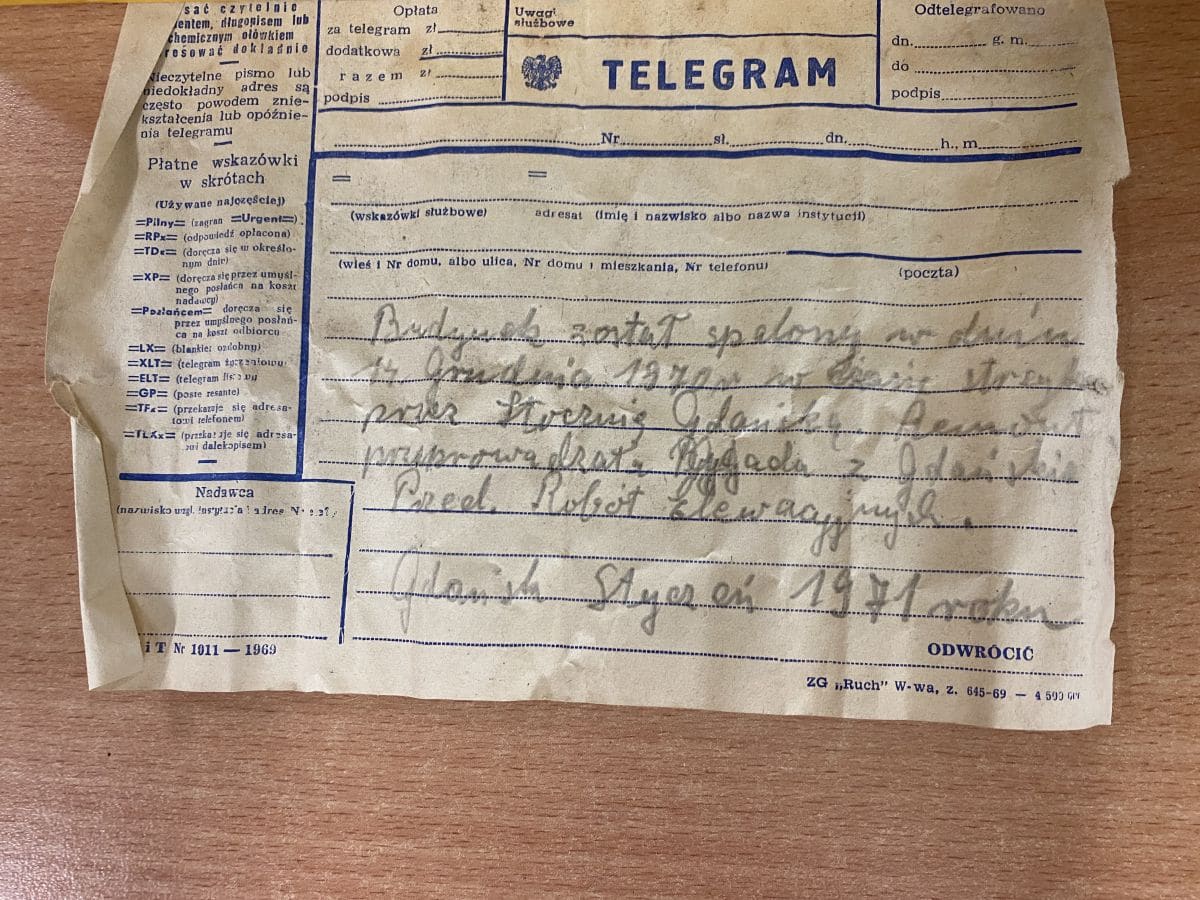 sać czytelnie
entem, długopisem lub
chemicznym ołówkiem
resować dokładnie
Nieczytelne pismo lub
niedokładny adres są
często powodem znie-
kształcenia lub opóźnie-
nia telegramu
Płatne wskazówki
w skrótach
(Używane najczęściej)
=Pilny= (zagran =Urgent=)
=RPx= (odpowiedź opłacona)
=TDx= (doręcza się w określo-
nym dniu)
=XP= (doręcza się przez umyśl-
nego posłańca na koszt
nadawcy)
=Posłańcem= doręcza się
przez umyślnego posłań-
ca na koszt odbiorcu
=LX= (blankiet ozdobny)
=XLT= (telegram
=ELT= (telegram
=GP= (poste restante)
=TFx= (przekazuje się adresa-
towi telefonem)
=TLXx= (przekazuje się adresa-
wi dalekopisem)
Opłata
za telegram zł
dodatkowa zł
razem zł
podpis
Uwagi
służbowe
TELEGRAM
Odtelegrafowano
dn. g. m.
do
podpis
Nr sł. dn. h., m
= =
(wskazówki służbowe) adresat (imię i nazwisko albo nazwa instytucji)
(wieś i Nr domu, albo ulica, Nr domu i mieszkania, Nr telefonu) (poczta)
Budynek został spalony w dniu
14 Grudnia 1970r w czasie strejku
przez Stocznię Gdańską. Remont
przyprowadzała Brygada z Gdańskie
Przed. Robót Elewacyjnych.
Gdańsk Styczeń 1971 roku
Nadawca
(nazwisko wzgl. instytucja i adres
iT Nr 1011 — 1969
ODWRÓCIĆ
ZG „Ruch" W-wa, z. 645-69 — 4 500